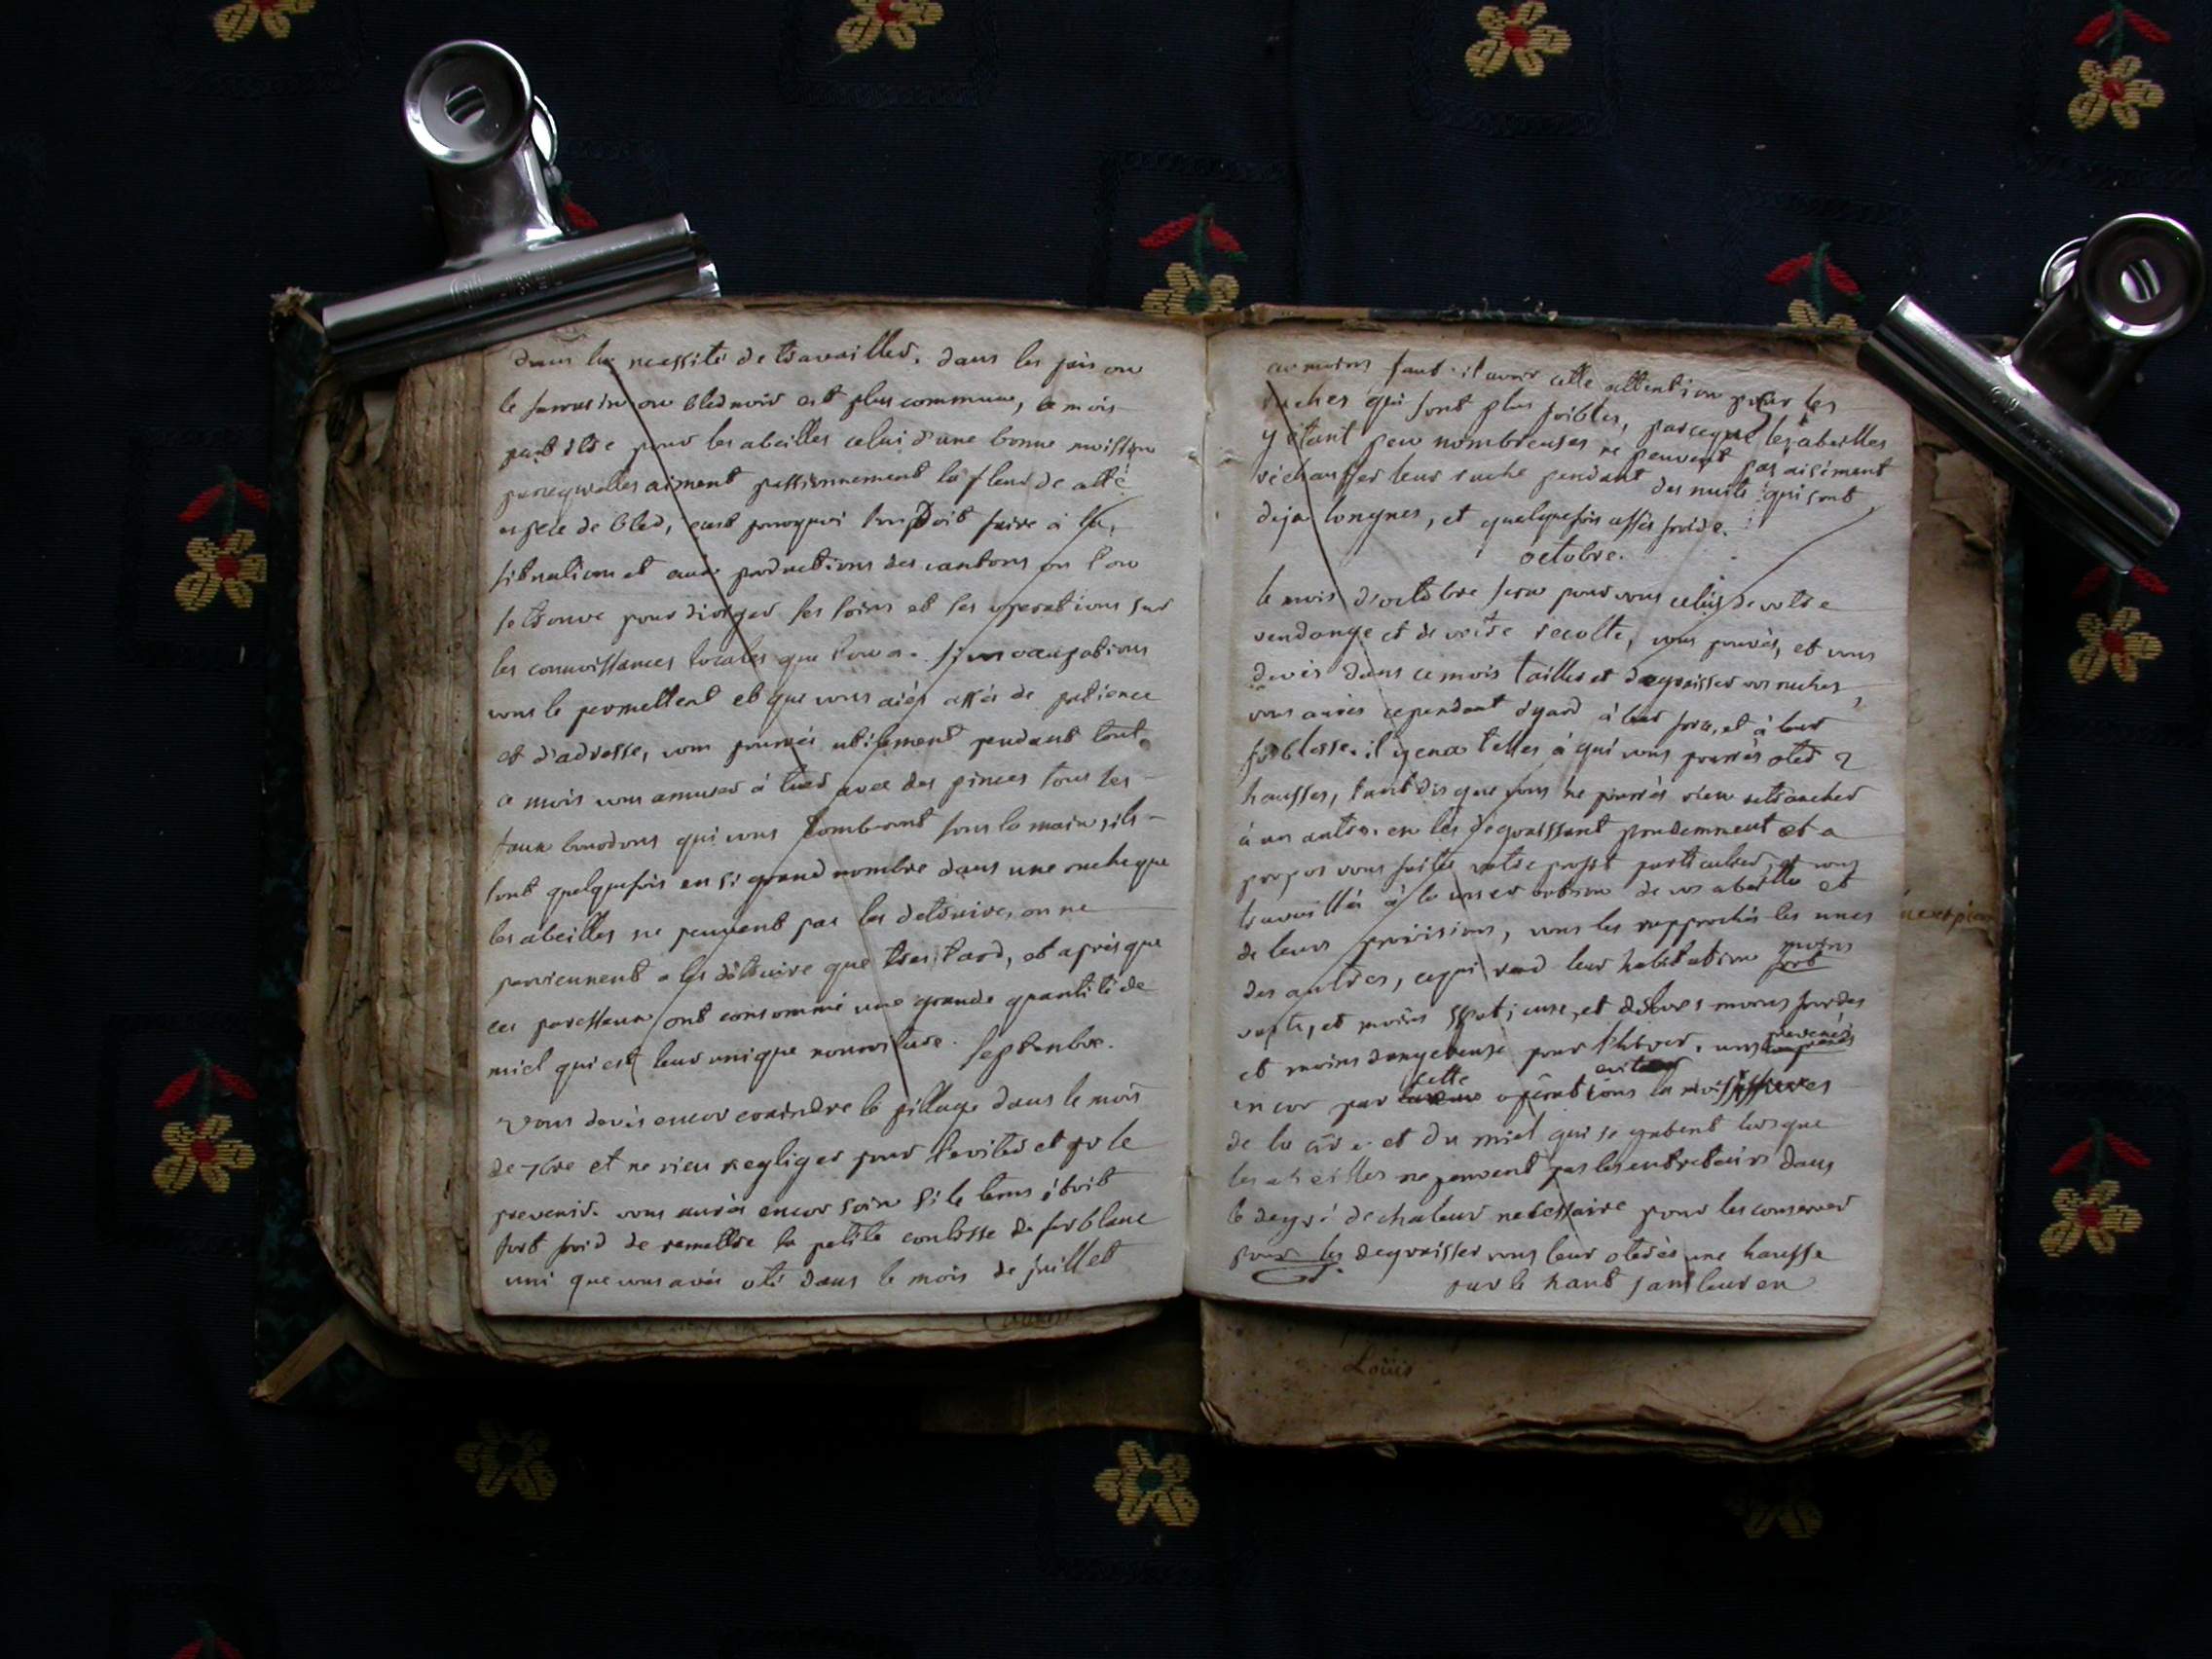 dans la necessité de travailler. dans les païs ou
le sarrasin ou bled noir est plus commun, le mois
peut etre pour les abeilles celui d'une bonne moisson
parcequ'elles aiment passionnement la fleur de cette
espece de bled, c'est pourquoi l'on doit faire à la
situation et aux productions des cantons ou l'on
se trouve pour diriger ses soins et ses operations sur
les connoissances locales que l'on a. si vos occupations
vous le permettent et que vous aiés assés de patience
et d'adresse, vous pourrés utilement pendant tout
ce mois vous amuser à tuer avec des pinces tous les
faux bourdons qui vous tomberont sous la main, ils
sont quelquefois en si grand nombre dans une ruche que
les abeilles ne peuvent pas les detruire, ou ne
parviennent a les détruire que tres tard, et après que
ces paresseux ont consommé une grande quantité de
miel qui est leur unique nourriture. septembre.
vous devés encor craindre le pillage dans le mois
de 7bre et ne rien negliger pour l'eviter et pr le
prevenir. vous aurés encor soin si le tems étoit
fort froid de remettre la petite coulisse de fer blanc
uni que vous avés oté dans le mois de juillet
au moins faut-il avoir cette attention pour les
ruches qui sont plus foibles, parceque les abeilles
y étant peu nombreuses ne peuvent pas aisément
réchauffer leur ruche pendant des nuits qui sont
deja longues, et quelquefois assés froides.
octobre.
le mois d'octobre sera pour vous celui de votre
vendange et de votre recolte, vous pouvés, et vous
devés dans ce mois tailler et degraisser vos ruches,
vous aurés cependant égard à leur force, et à leur
foiblesse. il y en a telles à qui vous pourrés oter 2
hausses, tandis que vous ne pourrés rien retrancher
à un autre. en les degraissant prudemment et a
propos vous faites votre profit particulier, et vous
travaillés à la conservation de vos abeilles et
de leurs provisions, vous les rapprochés les unes
des autres, ce qui rend leur habitation moins
fort
vaste, et moins spatieuse, et moins froides
et moins dangereuse pour l'hiver. vous prevenés
encor par cette operations la moisissures
de la cire et du miel qui se gatent lorsque
les abeilles ne peuvent pas les entretenir dans
le degré de chaleur necessaire pour les conserver
pour les degraisser vous leur oterés une hausse
par le haut sans leur en
Loüis